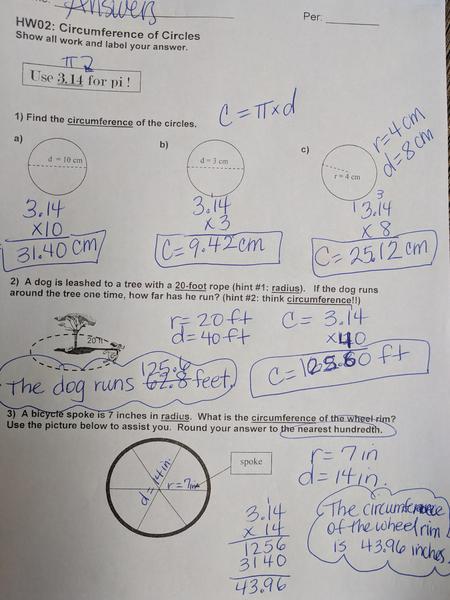 Answers
Per:
HW02: Circumference of Circles
Show all work and label your answer.
Use 3.14 for pi !
1) Find the circumference of the circles.
C = π×d
a)
b)
c)
d = 10 cm
d = 3 cm
r = 4 cm
r = 4 cm
d = 8 cm
3.14
x10
31.40 cm
1
3.14
x 3
C = 9.42 cm
1 3
3.14
x 8
C = 25.12 cm
2) A dog is leashed to a tree with a 20-foot rope (hint #1: radius). If the dog runs
around the tree one time, how far has he run? (hint #2: think circumference!!)
20 ft
r = 20 ft
d = 40 ft
C = 3.14
x40
C = 125.60 ft
125.6
The dog runs 62.8 feet.
3) A bicycle spoke is 7 inches in radius. What is the circumference of the wheel rim?
Use the picture below to assist you. Round your answer to the nearest hundredth.
d = 14 in.
r = 7in
spoke
r = 7 in
d = 14 in.
1
3.14
x 14
1256
3140
43.96
The circumference
of the wheel rim
is 43.96 inches.